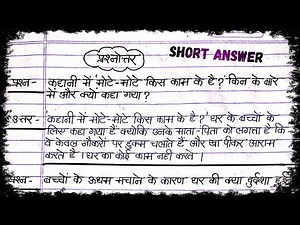 प्रश्नोत्तर
SHORT ANSWER
प्रश्न- कहानी में 'मोटे-मोटे किस काम के है?' किन के बारे
में और क्यों कहा गया?
उत्तर- 'कहानी में मोटे-मोटे किस काम के है?' घर के बच्चों के
लिए कहा गया है क्योंकि उनके माता-पिता को लगता है कि
वे केवल नौकरों पर हुक्म चलाते हैं और खा पीकर आराम
करते है। घर का कोई काम नहीं करते।
प्रश्न- बच्चों के ऊधम मचाने के कारण घर की क्या दुर्दशा